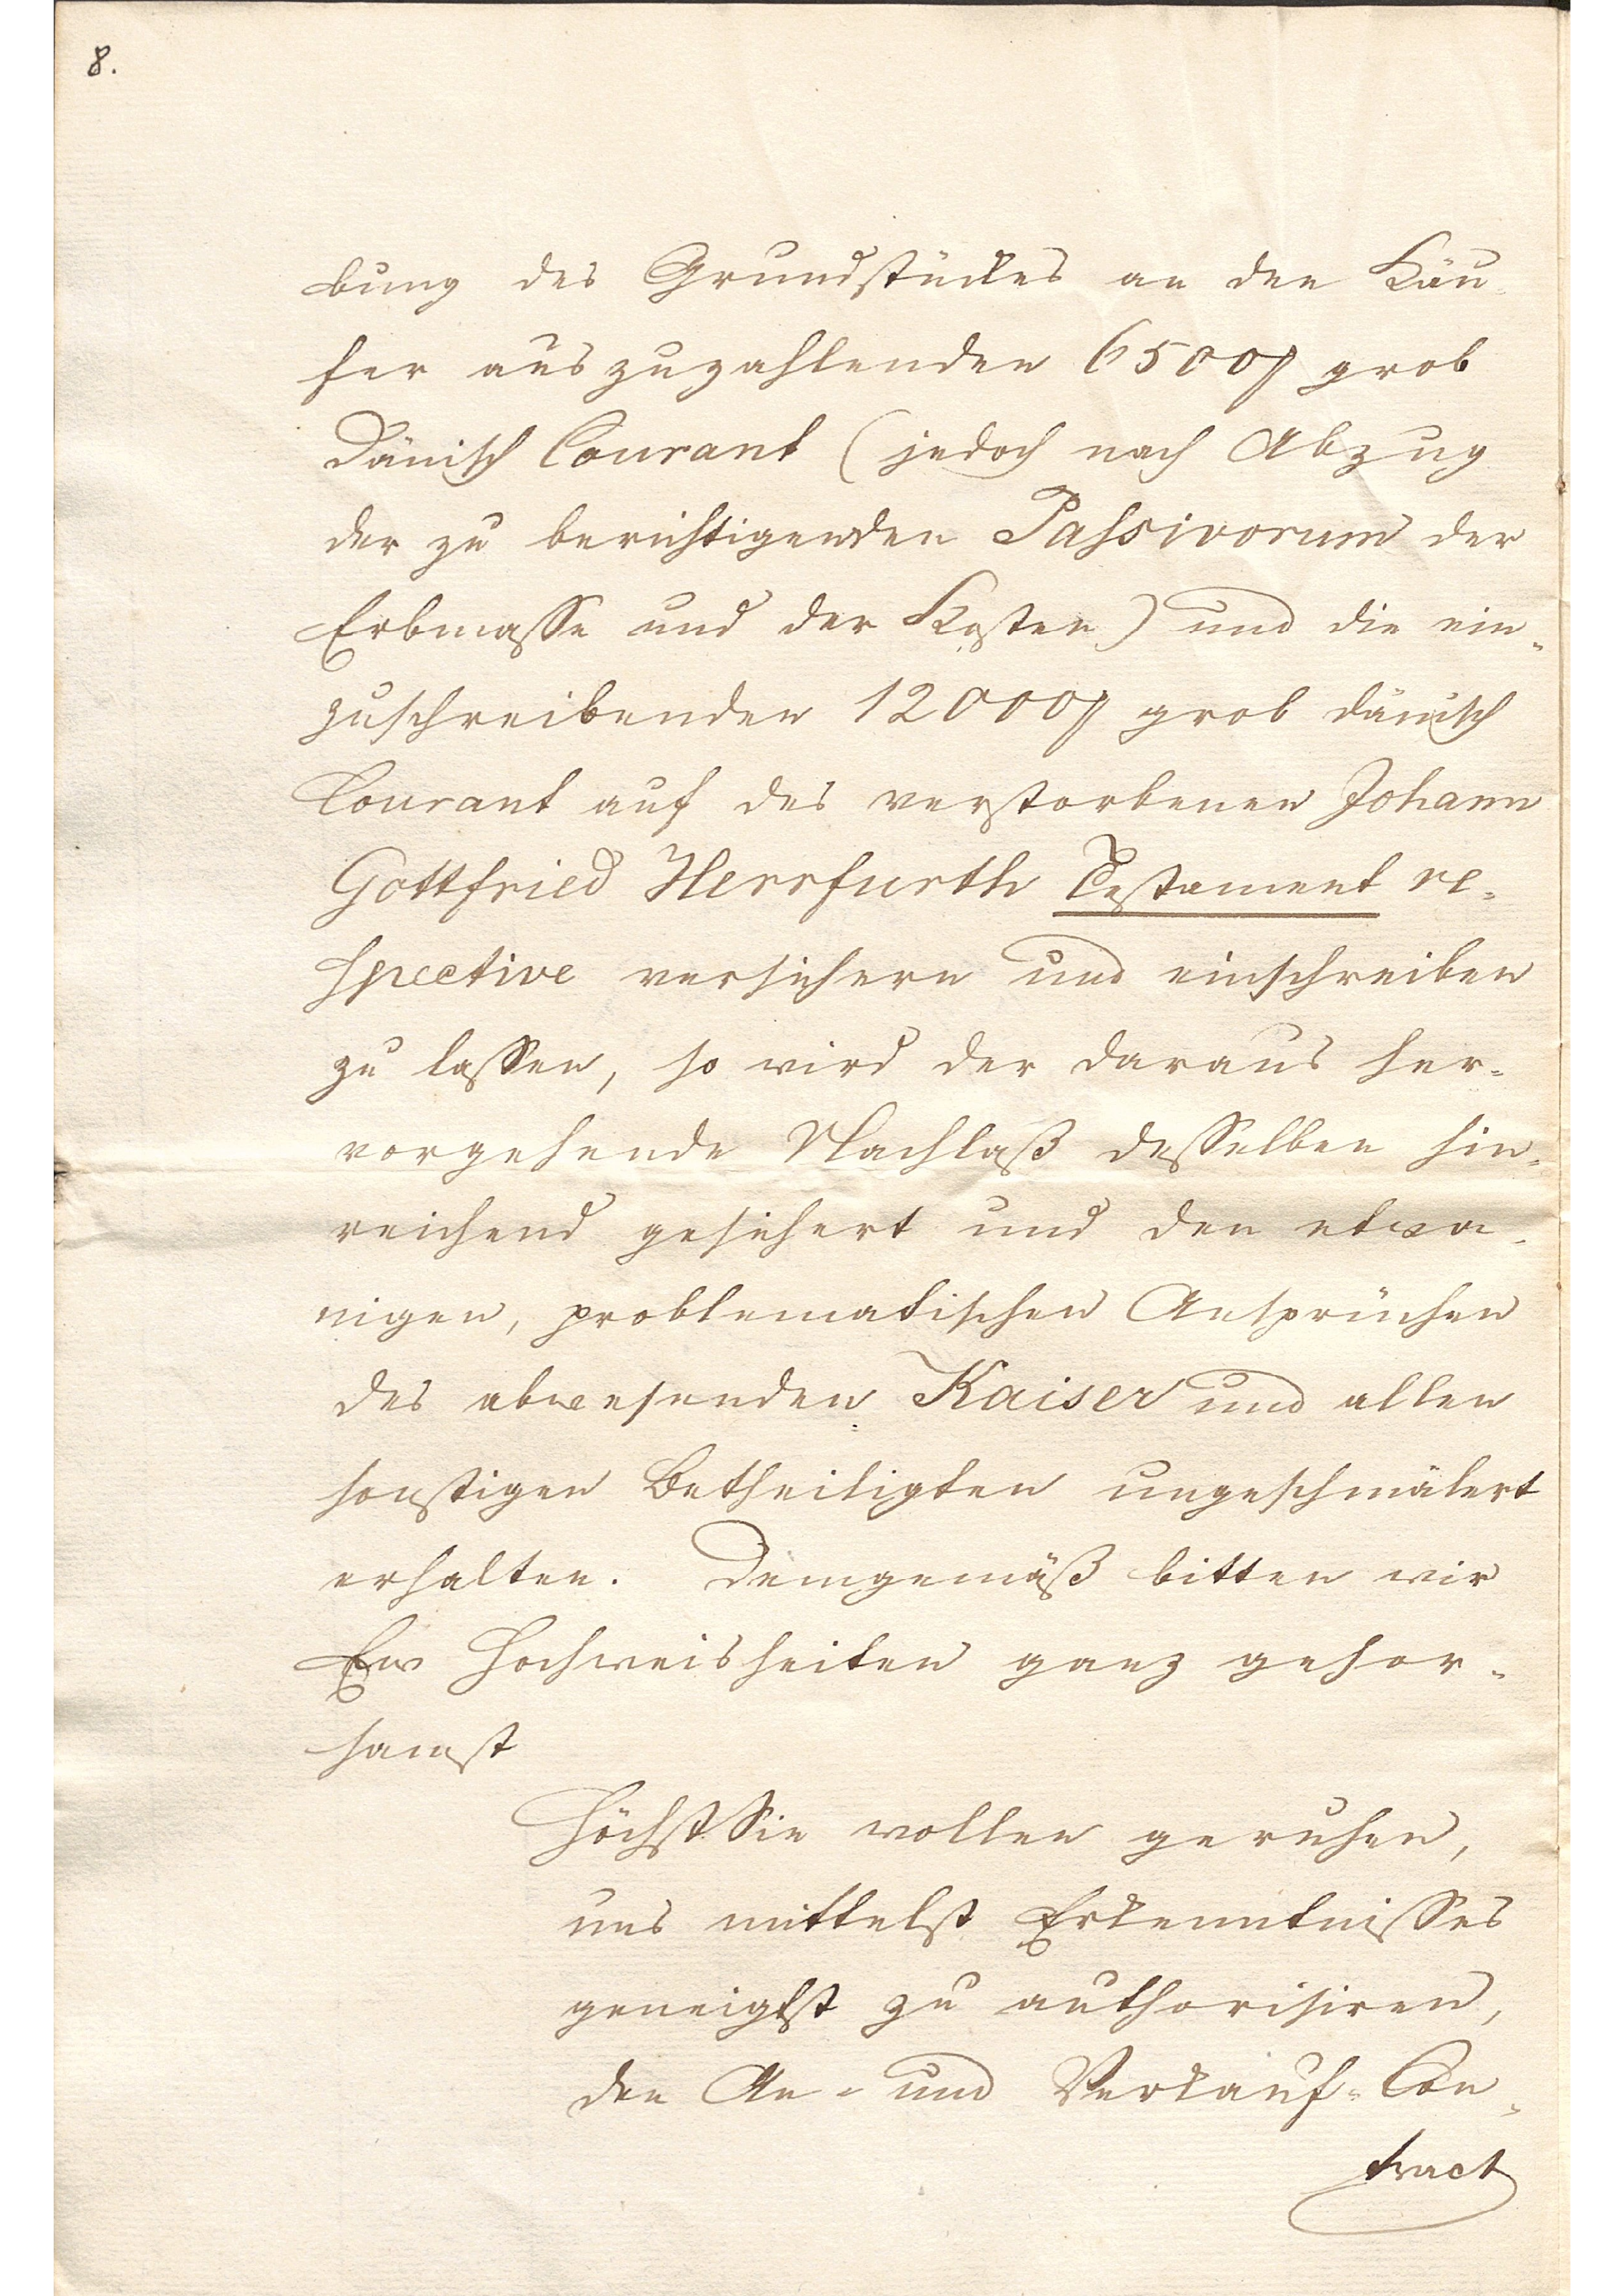 8.
bung des Grundstückes an den Käu-
fer auszuzahlenden 6500 ₰ grob
Dänisch Courant (jedoch nach Abzug
der zu berichtigenden Passivorum der
Erbmasse und der Kosten) und die ein-
zuschreibenden 12000 ₰ grob dänisch
Courant auf des verstorbenen Johann
Gottfried Herrfurth Testament re-
spective versichern und einschreiben
zu lassen, so wird der daraus her-
vorgehende Nachlaß desselben hin-
reichend gesichert und den etwa-
nigen, problematischen Ansprüchen
des abwesenden Kaiser und allen
sonstigen Betheiligten ungeschmälert
erhalten. Demgemäß bitten wir
Ew Hochweisheiten ganz gehor-
samst
HöchstSie wollen geruhen,
uns mittelst Erkenntnisses
geneigtst zu authorisiren,
den An- und Verkauf-Con-
tract